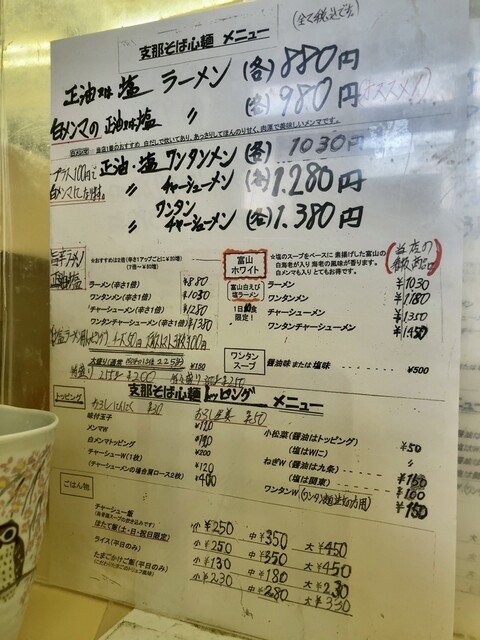 支那そば心麺 メニュー
(全て税込です。)
正油または塩 ラーメン (各) 880円
白メンマの 正油または塩 〃 (各) 980円 (おススメ!!)
白メンマは 当店1番のおすすめ 白だしで炊いてあり、あっさりしてほんのり甘く、肉厚で美味しいメンマです。
プラス100円で
白メンマになります。
正油・塩 ワンタンメン (各) 1030円
〃 〃 チャーシューメン (各) 1.280円
〃 ワンタンチャーシューメン (各) 1.380円
旨辛ラーメン
正油または塩
*おすすめは2倍(辛さ1アップごとに¥20増)
ラーメン(辛さ1倍) ¥880
ワンタンメン(辛さ1倍) ¥1030
チャーシューメン(辛さ1倍) ¥1280
ワンタンチャーシューメン(辛さ1倍) ¥1380
¥150
富山
ホワイト
富山白えび
塩ラーメン
1日 食
限定!
*塩のスープをベースに 素揚げした富山の
白海老が入り 海老の風味が香ります。
白メンマも入り とてもお得です。
当店の
ラーメン ¥1030
ワンタンメン ¥1180
チャーシューメン ¥1350
ワンタンチャーシューメン ¥1450
ワンタン
スープ
醤油味 または 塩味 ¥500
支那そば心麺 トッピング メニュー
トッピング
おろしにんにく ¥30
おろし生姜 ¥50
味付玉子 ¥120
メンマW ¥110
白メンマトッピング ¥200
チャーシューW(1枚) ¥120
(チャーシューメンの場合肩ロース2枚) ¥400
小松菜(醤油はトッピング) ¥50
(塩はWに) 〃
ねぎW(醤油は九条) ¥150
(塩は関東) ¥100
ワンタンW ¥150
ごはん物
チャーシュー飯 小 ¥250 中 ¥350 大 ¥450
ほたて飯(土・日・祝日限定) 小 ¥250 中 ¥350 大 ¥450
ライス(平日のみ) 小 ¥130 中 ¥180 大 ¥230
たまごかけご飯(平日のみ) 小 ¥230 中 ¥280 大 ¥330